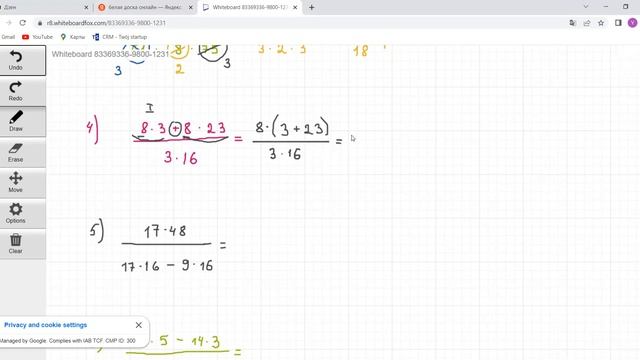 Дзен
белая доска онлайн — Яндекс
Whiteboard 83369336-9800-1231
r8.whiteboardfox.com/83369336-9800-1231
Диски Google
CRM
Twój startup
Whiteboard 83369336-9800-1231
Undo
Redo
Draw
Erase
Move
Options
Clear
3 2 3
3 · 2 · 3
18
I
4) 8 · 3 + 8 · 23 / 3 · 16 = 8 · (3 + 23) / 3 · 16 =
5) 17 · 48 / 17 · 16 − 9 · 16 =
5 − 14 · 3 =
Privacy and cookie settings
Managed by Google. Complies with IAB TCF. CMP ID: 300